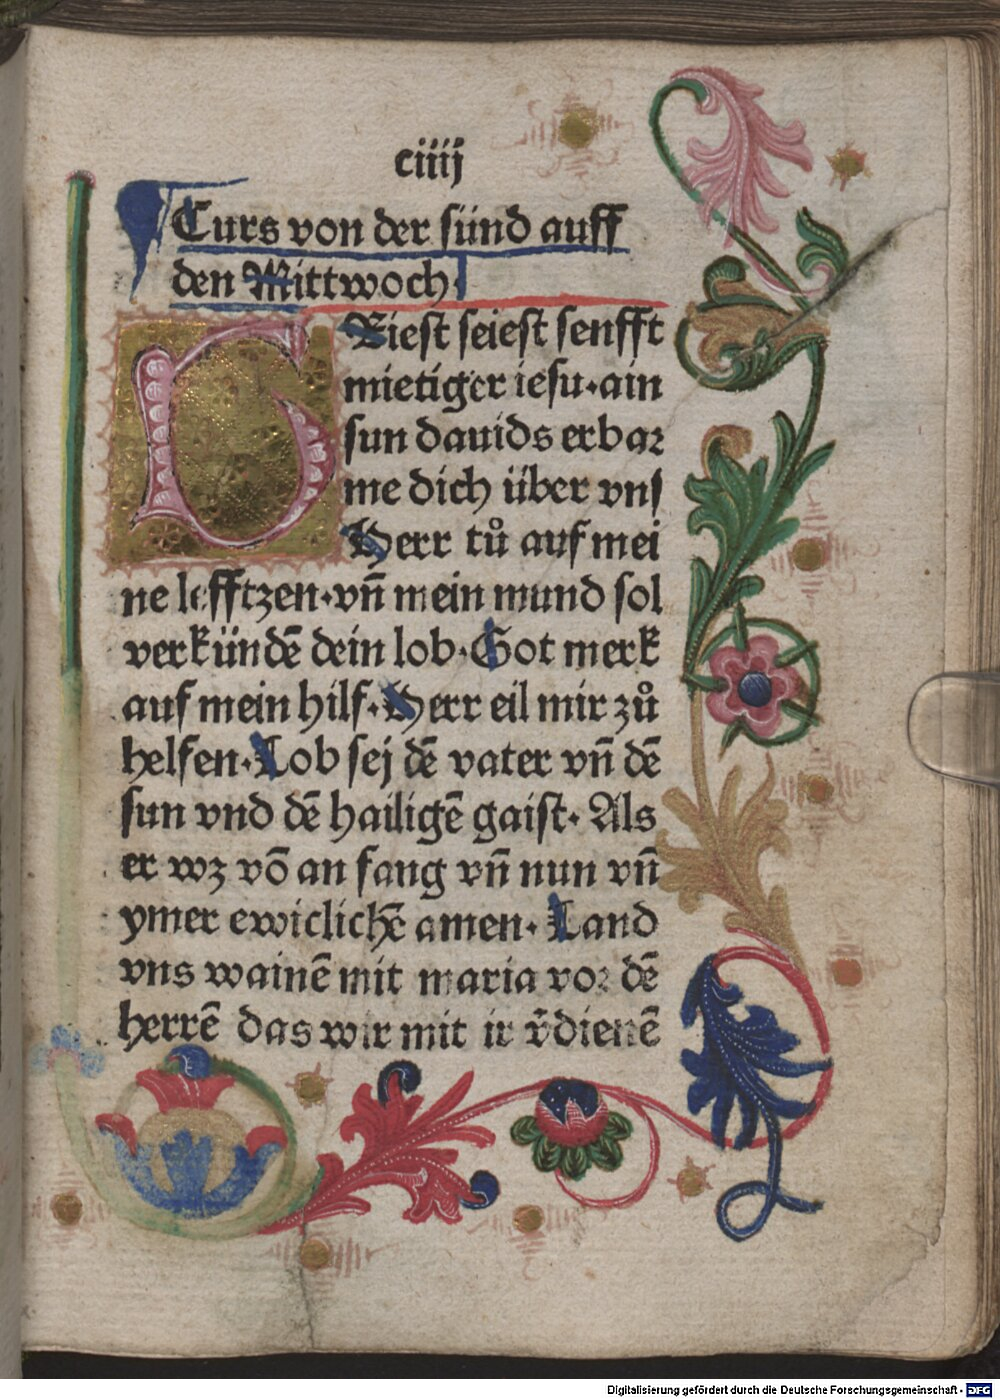 ciiij
Curs von der sünd auff
den Mittwoch·
GRiest seiest senfft
mietiger iesu·ain
sun dauids erbar
me dich über vnſ
Herr tů auf mei
ne lefftzen·vn̄ mein mund sol
verkündē dein lob·Got merk
auf mein hilf·Herr eil mir zů
helfen·Lob sej dē vater vn̄ dē
sun vnd dē hailigē gaist·Als
er wz vō an fang vn̄ nun vn̄
ymer ewiclichē amen·Land
vns wainē mit maria vor dē
herrē das wir mit ir v̄dienē
Digitalisierung gefördert durch die Deutsche Forschungsgemeinschaft - DFG